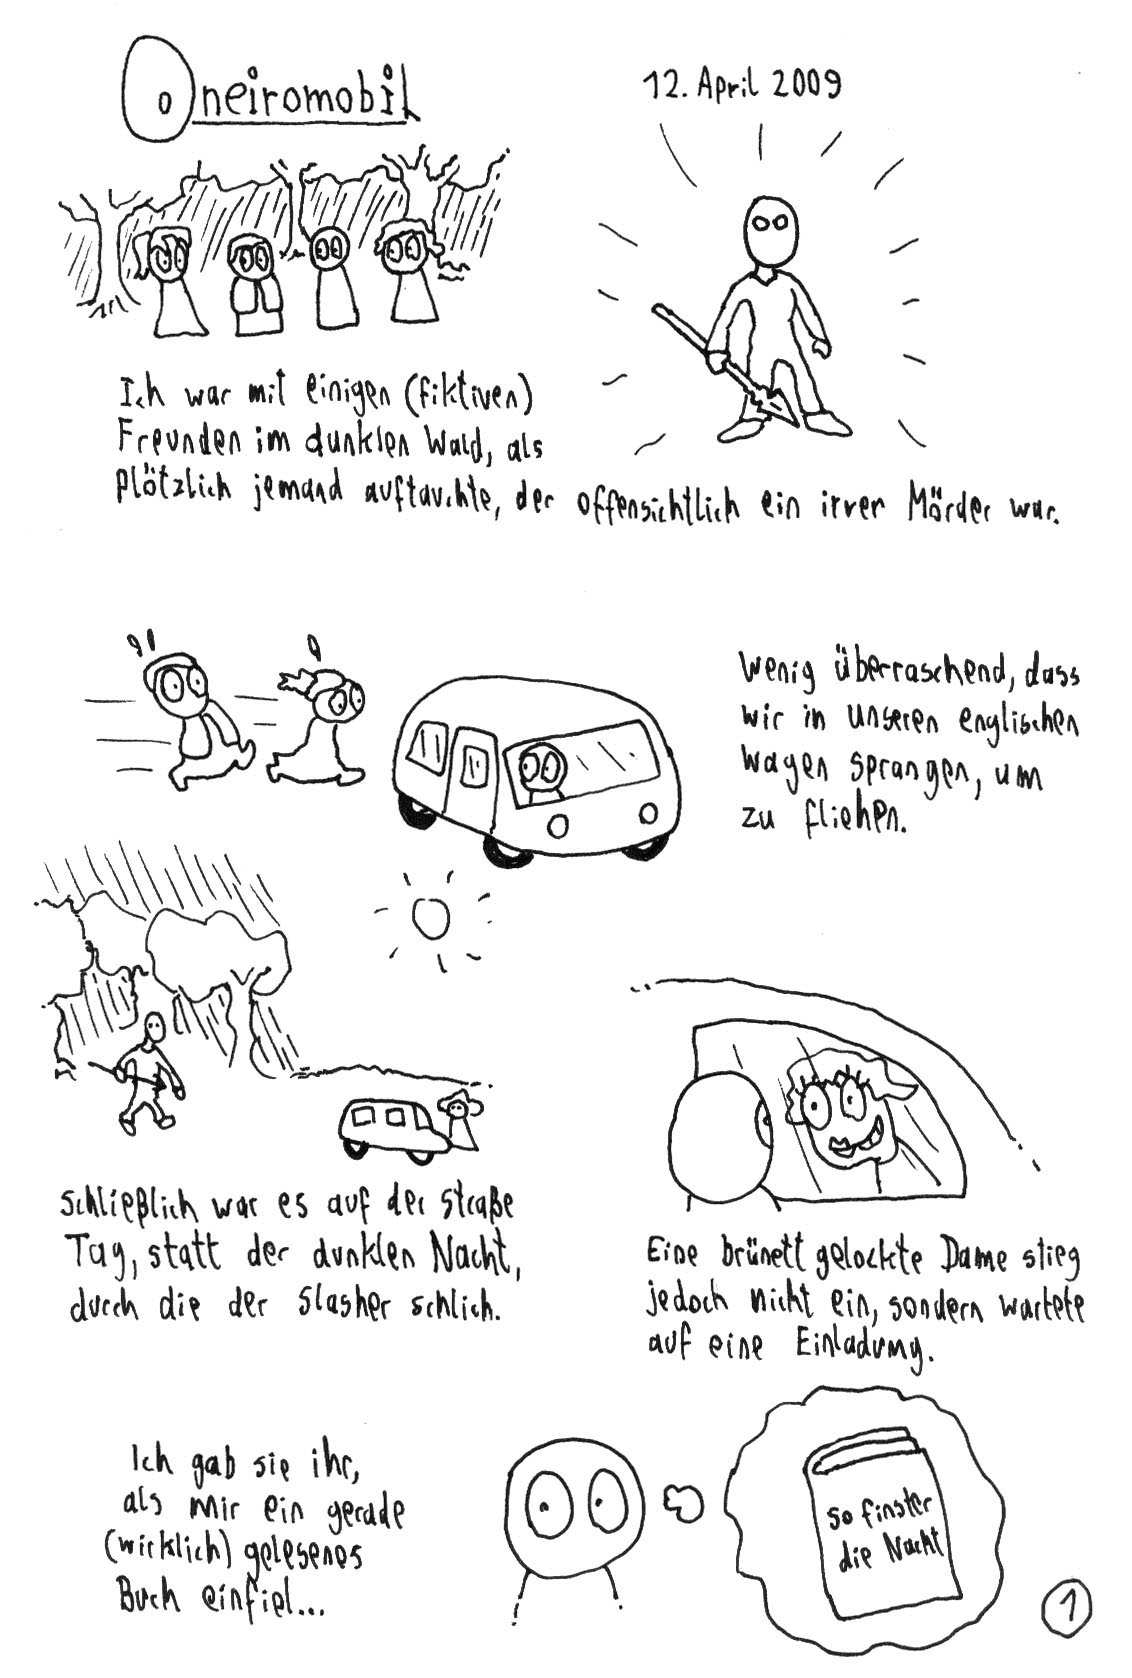 Oneiromobil
12. April 2009
Ich war mit einigen (fiktiven)
Freunden im dunklen Wald, als
plötzlich jemand auftauchte, der offensichtlich ein irrer Mörder war.
Wenig überraschend, dass
wir in unseren englischen
Wagen sprangen, um
zu fliehen.
Schließlich war es auf der Straße
Tag, statt der dunklen Nacht,
durch die der Slasher schlich.
Eine brünett gelockte Dame stieg
jedoch nicht ein, sondern wartete
auf eine Einladung.
Ich gab sie ihr,
als mir ein gerade
(wirklich) gelesenes
Buch einfiel...
So finster
die Nacht
1